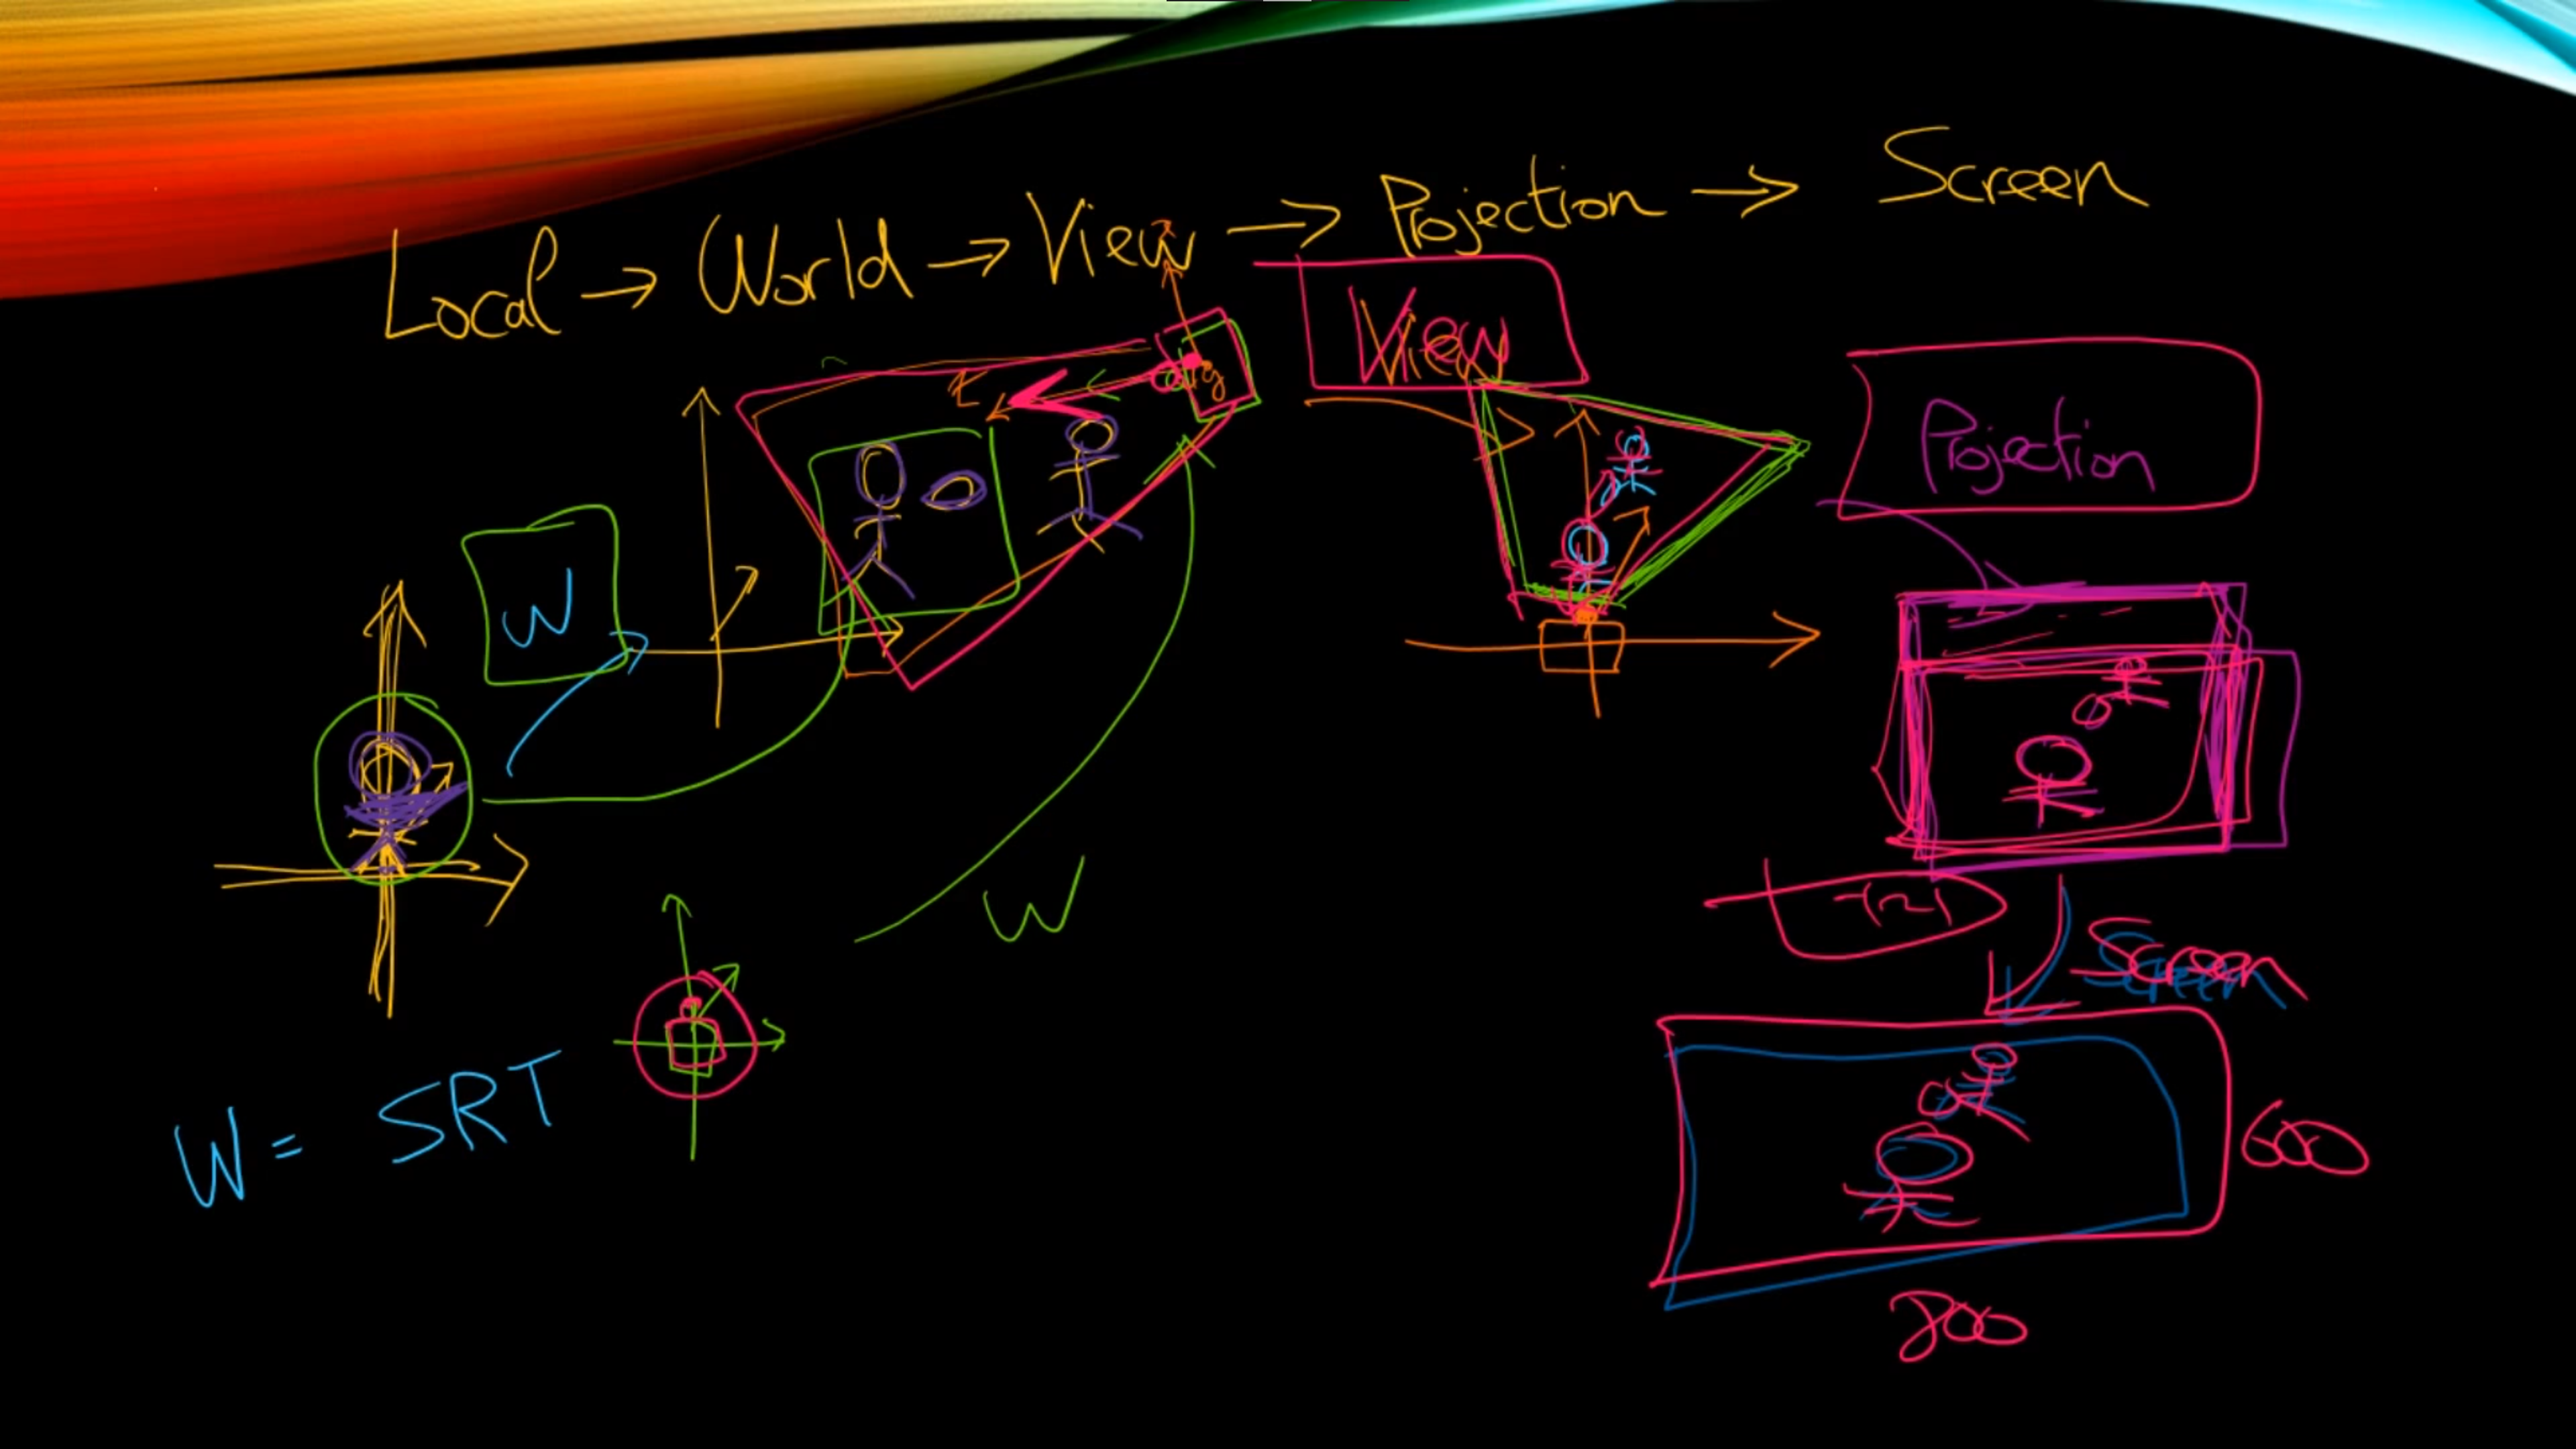 Local → World → View → Projection → Screen
View
Projection
W
W
Screen
W = SRT
600
800